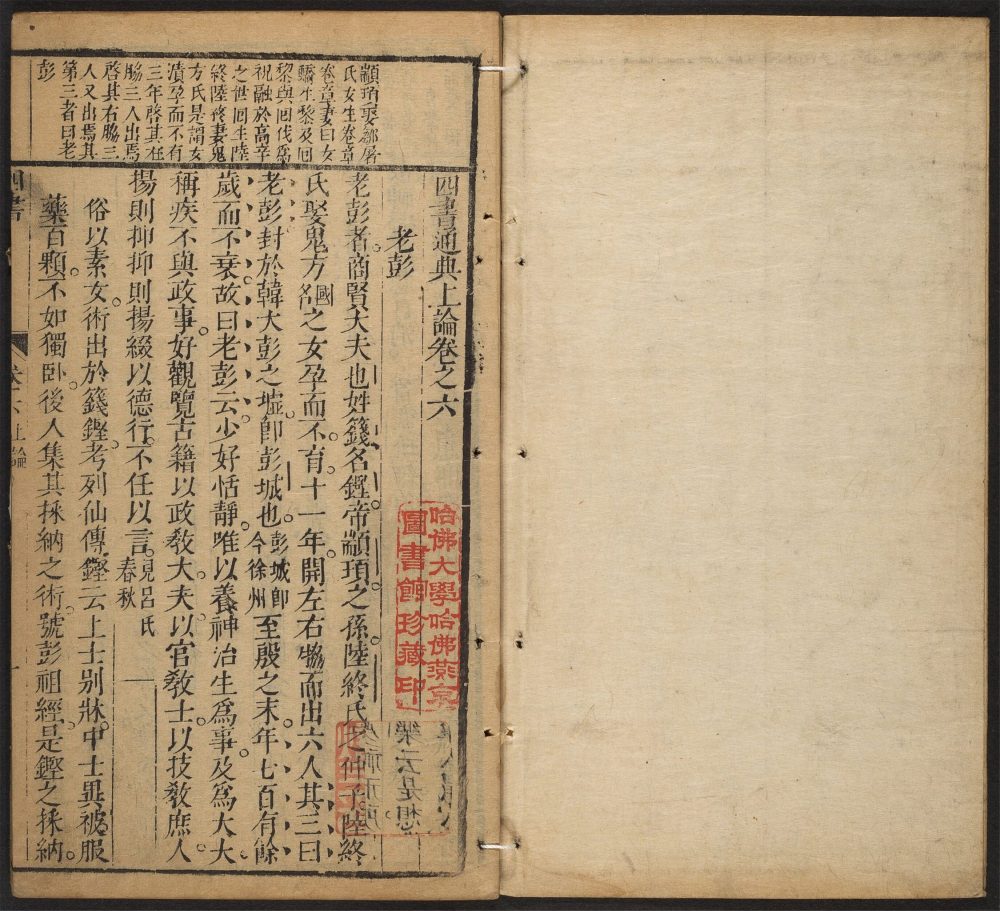 顓頊娶鄒屠
氏女生卷章
卷章妻曰女
嬌生黎及回
黎與回代爲
祝融於高辛
之世回生陸
終陸終妻鬼
方氏是謂女
潰孕而不育
三年啓其左
脇三人出焉
啓其右脇三
人又出焉其
第三者曰老
彭
四書通典上論卷之六
老彭
老彭者商賢大夫也姓籛名鏗帝顓頊之孫陸終氏之仲子陸終
氏娶鬼方國名之女孕而不育十一年開左右脇而出六人其三曰
老彭封於韓大彭之墟卽彭城也彭城卽今徐州至殷之末年七百有餘
歲而不衰故曰老彭云少好恬靜唯以養神治生爲事及爲大夫
稱疾不與政事好觀覽古籍以政敎大夫以官敎士以技敎庶人
揚則抑抑則揚綴以德行不任以言見呂氏春秋
俗以素女術出於籛鏗考列仙傳鏗云上士別牀中士異被服
藥百顆不如獨臥後人集其採納之術號彭祖經是鏗之採納
四書
卷六 上論
一
哈佛大學哈佛燕京
圖書館珍藏印